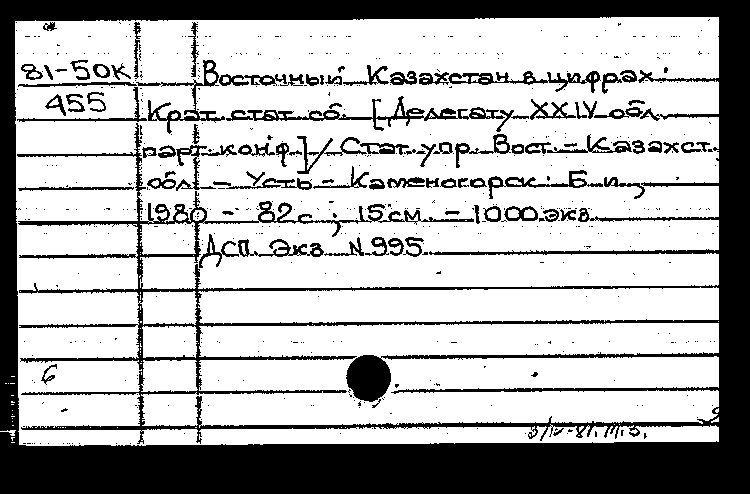 81-50к Восточный Казахстан в цифрах:
455 Крат. стат. сб. [Делегату XXIV обл.
парт. конф.] / Стат. упр. Вост.-Казахст.
обл. - Усть-Каменогорск: Б. и.,
1980 - 82 с.; 15 см. - 1000 экз.
ДСП. Экз. N 995.
6